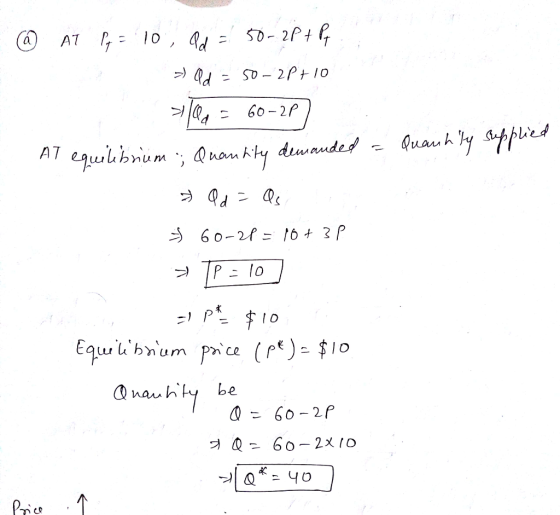 (a) AT P_T = 10, Q_d = 50-2P+P_T
⇒ Q_d = 50-2P+10
⇒ Q_d = 60-2P
AT equilibrium ; Quantity demanded = Quantity supplied
⇒ Q_d = Q_s
⇒ 60-2P = 10+3P
⇒ P = 10
⇒ P* = $10
Equilibrium price (P*) = $10
Quantity be
Q = 60-2P
⇒ Q = 60-2×10
⇒ Q* = 40
Price ↑